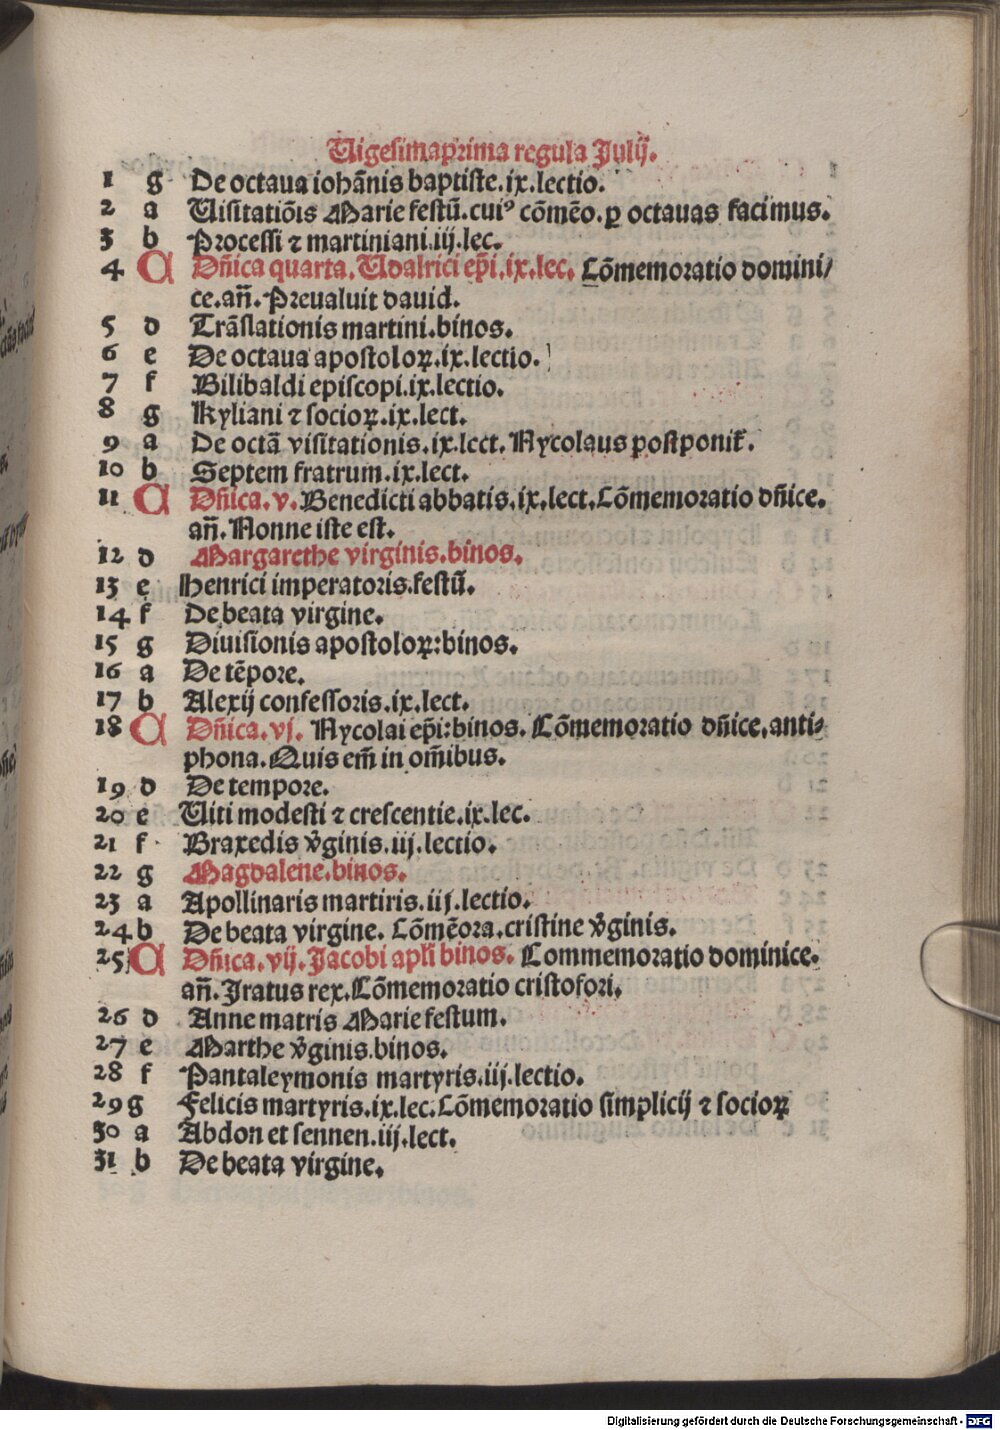 Uigesimaprima regula Julij.
1 g De octaua iohãnis baptiste.ix.lectio.
2 a Uisitatiõis Marie festũ.cuiꝰ cõmẽo.ꝑ octauas facimus.
3 b Processi ⁊ martiniani.iij.lec.
4 A Dñica quarta. Udalrici ep̃i.ix.lec. Cõmemoratio domini/
ce.añ. Preualuit dauid.
5 d Trãslationis martini.binos.
6 e De octaua apostoloꝝ.ix.lectio.
7 f Bilibaldi episcopi.ix.lectio.
8 g Kyliani ⁊ socioꝝ.ix.lect.
9 a De octã visitationis.ix.lect. Nycolaus postponit̃.
10 b Septem fratrum.ix.lect.
11 A Dñica.v. Benedicti abbatis.ix.lect.Cõmemoratio dñice.
añ. Nonne iste est.
12 d Margarethe virginis.binos.
13 e Henrici imperatoris.festũ.
14 f De beata virgine.
15 g Diuisionis apostoloꝝ:binos.
16 a De tẽpore.
17 b Alexij confessoris.ix.lect.
18 A Dñica.vj. Nycolai ep̃i:binos. Cõmemoratio dñice.anti/
phona.Quis em̃ in om̃ibus.
19 d De tempore.
20 e Uiti modesti ⁊ crescentie.ix.lec.
21 f Braxedis v̾ginis.iij.lectio.
22 g Magdalene.binos.
23 a Apollinaris martiris.iij.lectio.
24 b De beata virgine. Cõmẽora.cristine v̾ginis.
25 A Dñica.vij. Jacobi apl̃i binos. Commemoratio dominice.
añ. Iratus rex.Cõmemoratio cristofori.
26 d Anne matris Marie festum.
27 e Marthe v̾ginis.binos.
28 f Pantaleymonis martyris.iij.lectio.
29 g Felicis martyris.ix.lec.Cõmemoratio simplicij ⁊ socioꝝ
30 a Abdon et sennen.iij.lect.
31 b De beata virgine.
Digitalisierung gefördert durch die Deutsche Forschungsgemeinschaft - DFG